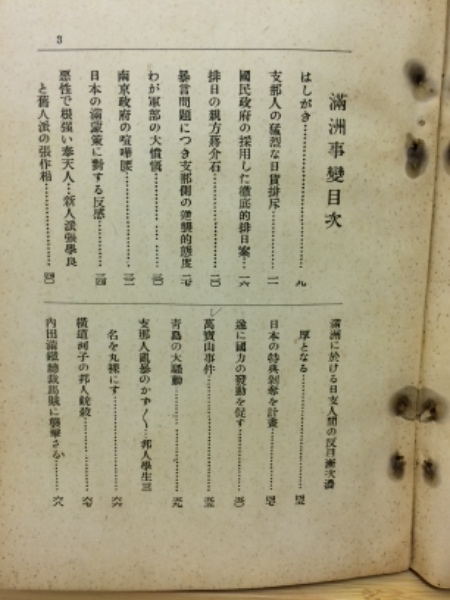 3
滿洲事變目次
はしがき…………九
支那人の猛烈な日貨排斥…………一一
國民政府の採用した徹底的排日案…一六
排日の親方蔣介石…………二〇
暴言問題につき支那側の逆襲的態度
わが軍部の大憤慨…………三〇
南京政府の喧嘩腰…………三二
日本の滿蒙策に對する反感…………三四
惡性で根强い奉天人…新人派張學良
と舊人派の張作相…………四〇
滿洲に於ける日支人間の反目漸次濃
厚となる…………四五
日本の特典剝奪を計畫…………四七
遂に國力の發動を促す…………五〇
萬寶山事件…………五五
靑島の大騷動…………五九
支那人亂暴のかず〱 邦人學生三
名を丸裸にす…………六六
橫道河子の邦人銃殺…………六七
內田滿鐵總裁馬賊に襲擊さる…………六八